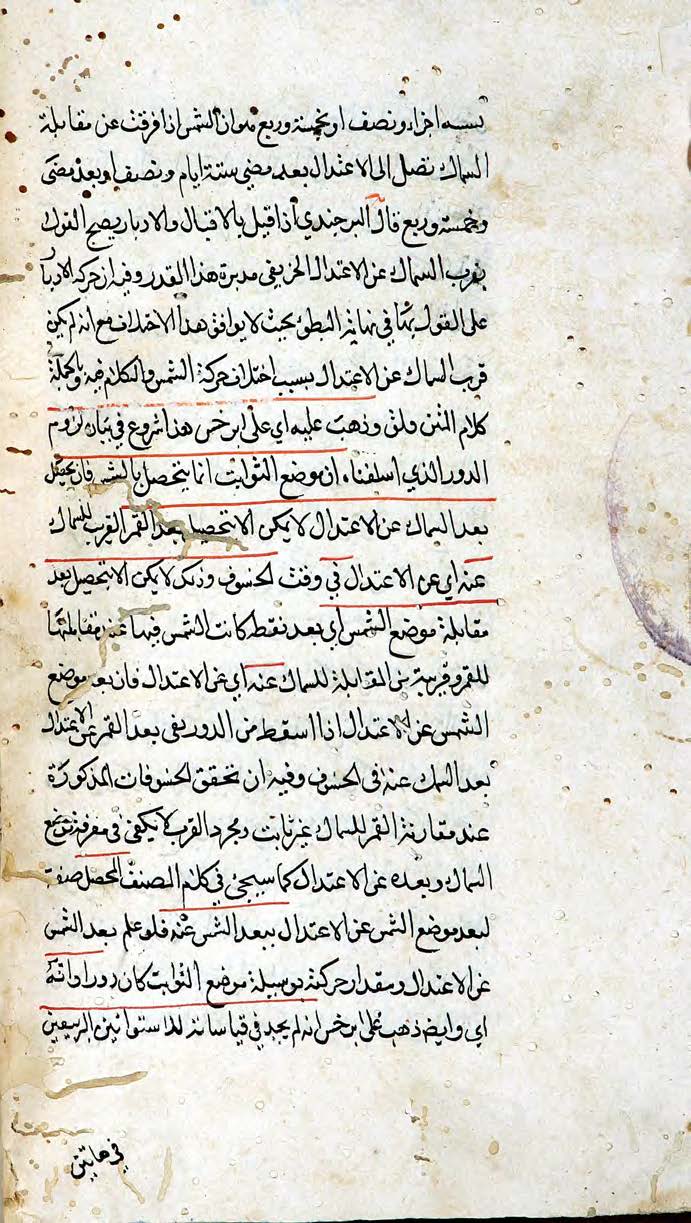 ستة اجزاء ونصف او بخمسة وربع فوان الشمس اذا فرقت عن مقابلة
السماك تصل الى الاعتدال بعد مضي ستة ايام ونصف او بعد مضى
وخمسة وربع قال البرجندي اذا قيل بالاقبال والادبار يصح القول
بقرب السماك عن الاعتدال الخريفى مدبرة هذا القدر وفيه ان حركة الادبار
على القول بها في نهاية البطؤ بحيث لا يوافق هذا الاختلاف مع انه لم يكن
قرب السماك عن الاعتدال بسبب اختلاف حركة الشمس والكلام فيه وبالجملة
كلام المتن وذهب عليه اي على ابرخس هذا شروع في بيان لزوم
الدور الذي اسلفناه ان موضع الثوابت انما يتحصل بالشمس فان تحصل
بعد السماك عن الاعتدال لا يمكن الا بتحصيل بعد القمر القريب للسماك
عنه اي عن الاعتدال في وقت الخسوف وذلك لا يمكن الا بتحصيل بعد
مقابلة موضع الشمس اي بعد نقطة كانت الشمس فيها عند مقابلتها
للقمر وقريبة من المقابلة للسماك عنه اي عن الاعتدال فان بعد موضع
الشمس عن الاعتدال اذا اسقط من الدور بقى بعد القمر عن الاعتدال
بعد السمك عنه في الخسوف وفيه ان تحقق الخسوفات المذكورة
عند مقارنة القمر للسماك غير ثابت ومجرد القرب لا يكفى في معرفة موضع
السماك وبعده عن الاعتدال كما سيجئ في كلام المصنف المحصل صفة
لبعد موضع الشمس عن الاعتدال ببعد الشمس عنه فلو علم بعد الشمس
عن الاعتدال ومقدار حركته بوسيلة موضع الثوابت كان دورا وانه
اي وايضا ذهب على ابرخس انه لم يجد في قياساته للاستوائين الربيعين
في هاتين